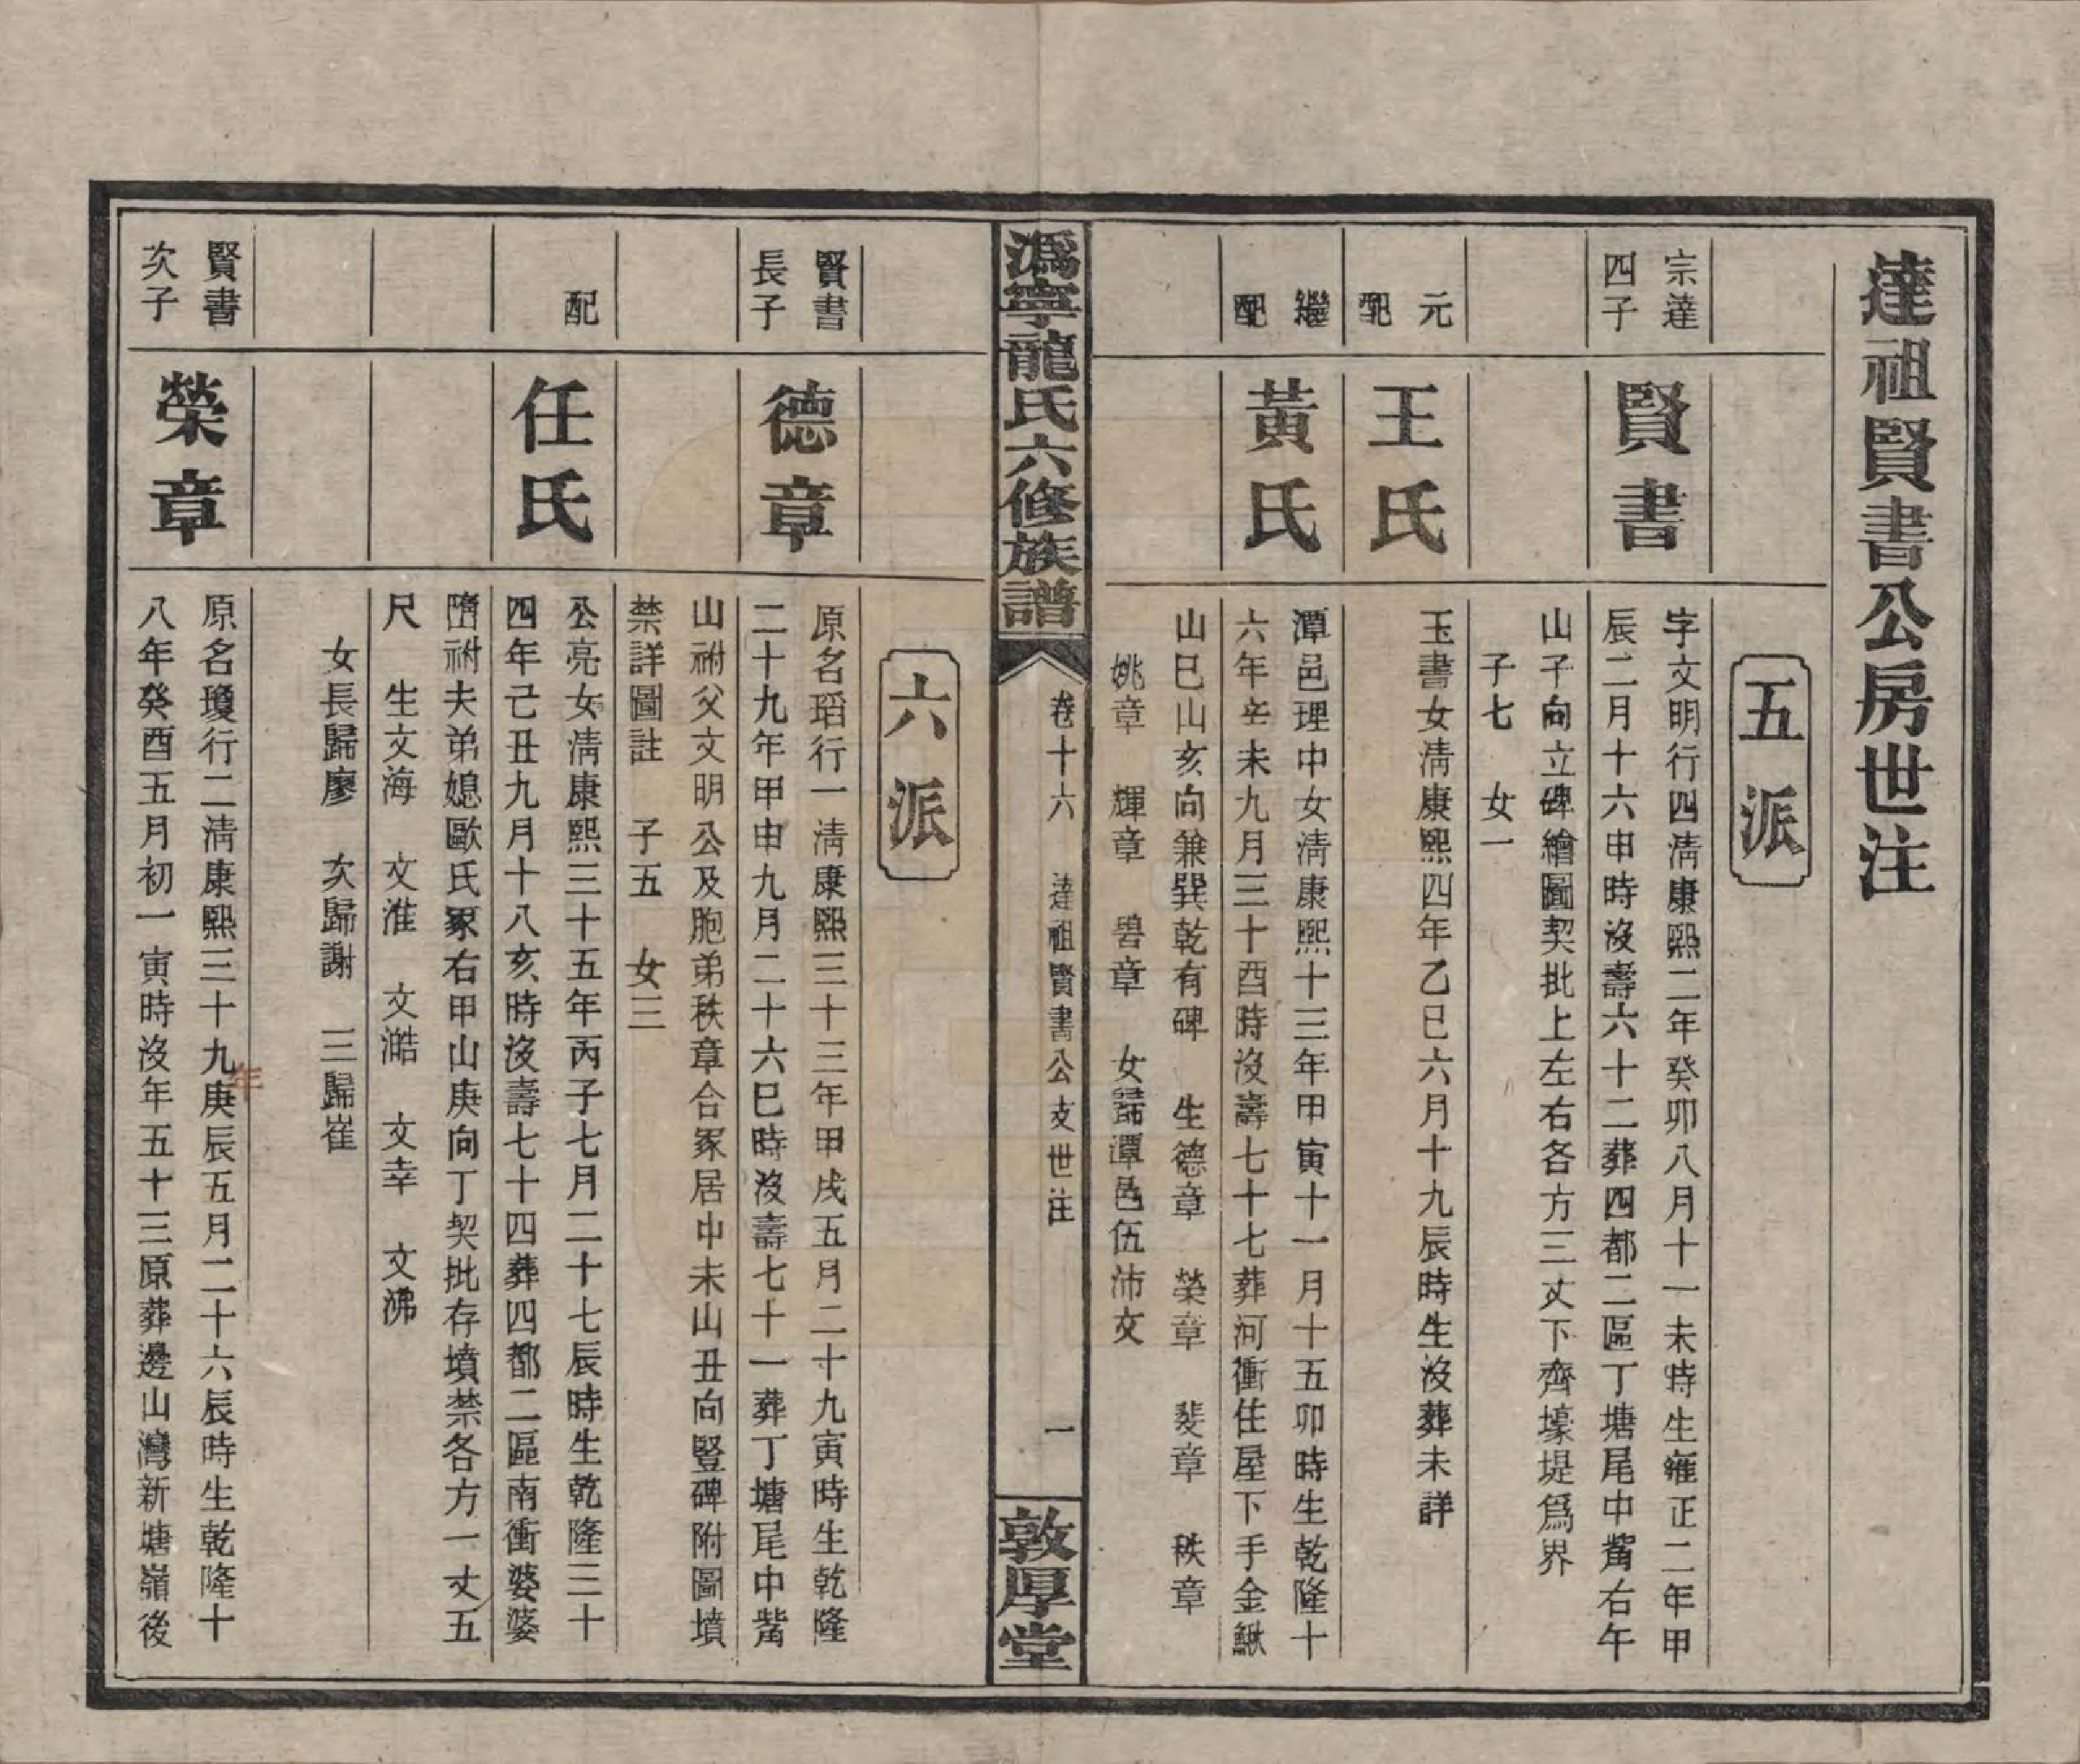 達祖賢書公房世注
五派
宗達
四子
賢書
字文明行四淸康熙二年癸卯八月十一未時生雍正二年甲
辰二月十六申時沒壽六十二葬四都二區丁塘尾中觜右午
山子向立碑繪圖契批上左右各方三丈下齊壕堤爲界
子七　女一
元
配
王氏
玉書女淸康熙四年乙巳六月十九辰時生沒葬未詳
繼
配
黃氏
潭邑理中女淸康熙十三年甲寅十一月十五卯時生乾隆十
六年辛未九月三十酉時沒壽七十七葬河衝住屋下手金鰍
山巳山亥向兼巽乾有碑　生德章　榮章　斐章　秩章
姚章　輝章　碧章　女歸潭邑伍沛文
溈寧龍氏六修族譜
卷十六　達祖賢書公支世注　一
敦厚堂
六派
賢書
長子
德章
原名瑫行一淸康熙三十三年甲戌五月二十九寅時生乾隆
二十九年甲申九月二十六巳時沒壽七十一葬丁塘尾中觜
山祔父文明公及胞弟秩章合冢居中未山丑向豎碑附圖墳
禁詳圖註　子五　女三
配
任氏
公亮女淸康熙三十五年丙子七月二十七辰時生乾隆三十
四年己丑九月十八亥時沒壽七十四葬四都二區南衝婆婆
㙮祔夫弟媳歐氏冢右甲山庚向丁契批存墳禁各方一丈五
尺　生文海　文淮　文澔　文幸　文沸
女長歸廖　次歸謝　三歸崔
賢書
次子
榮章
原名瓊行二淸康熙三十九年庚辰五月二十六辰時生乾隆十
八年癸酉五月初一寅時沒年五十三原葬邊山灣新塘嶺後